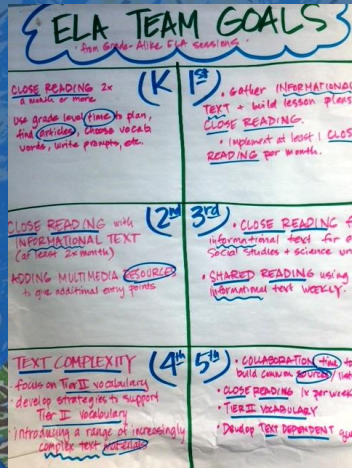 ELA TEAM GOALS
from Grade-Alike ELA sessions
K
CLOSE READING 2x
a month or more
Use grade level time to plan,
find articles, choose vocab
words, write prompts, etc.
1st
• Gather INFORMATIONAL
TEXT + build lesson plans
CLOSE READING.
• Implement at least 1 CLOS
READING per month.
2nd
CLOSE READING with
INFORMATIONAL TEXT
(at least 2x month)
ADDING MULTIMEDIA RESOURCES
to give additional entry points
3rd
• CLOSE READING f
informational text for
Social Studies + science un
• SHARED READING using
informational text WEEKLY.
4th
TEXT COMPLEXITY
focus on Tier II vocabulary
• develop strategies to support
Tier II vocabulary
• introducing a range of increasingly
complex text materials
5th
• COLLABORATION time to
build common sources
• CLOSE READING 1x per week
• TIER II VOCABULARY
• Develop TEXT DEPENDENT